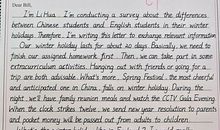 Dear Bill,
I'm Li Hua. I'm conducting a survey about the differences
between Chinese students and English students in their winter
holidays. Therefore, I'm writing this letter to exchange relevant information.
Our winter holiday lasts for about 40 days. Basically, we need to
finish our assigned homework first. Then, we can take part in some
extracurricular activities. Hanging out with friends or going for a
trip are both advisable. What's more, Spring Festival, the most cheerful
and anticipated one in China, falls on winter holiday. During the
night, we'll have family reunion meals and watch the CCTV Gala Evening.
When the clock strikes twelve, we send new year resolution to parents
and pocket money will be passed out from adults to children.